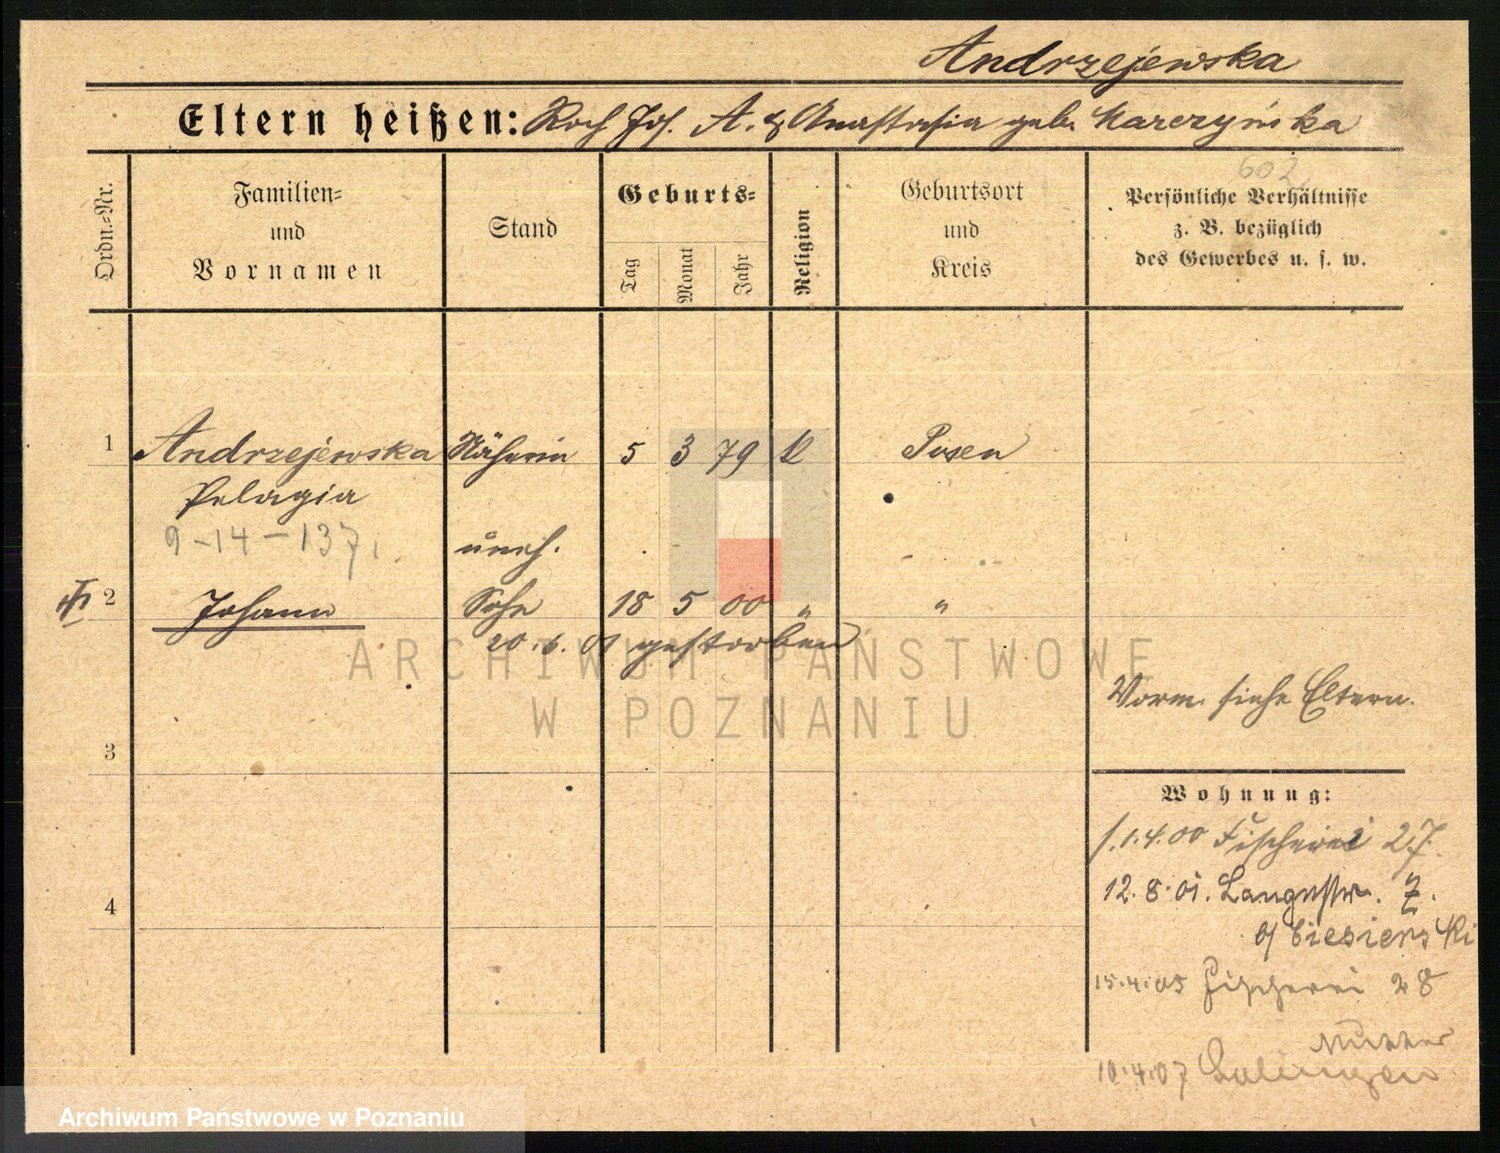 Andrzejewska
Eltern heißen: Roch Jos. A. & Anastasia geb. Karczyńska
602
Ordn.-Nr.
Familien-
und
Vornamen
Stand
Geburts-
Tag
Monat
Jahr
Religion
Geburtsort
und
Kreis
Persönliche Verhältnisse
z. B. bezüglich
des Gewerbes u. s. w.
1 Andrzejewska Näherin 5 3 79 K Posen
Pelagia
9-14-137
uneh.
2 Johann Sohn 18 5 00 " "
20.6.01 gestorben
ARCHIWUM PAŃSTWOWE
W POZNANIU
Vorm. siehe Eltern.
3
Wohnung:
1.4.00 Fischerei 27.
12.8.01. Langestr. 7.
b/ Ciesierski
4
15.4.05 Fischerei 28
Mutter
10.4.07
Archiwum Państwowe w Poznaniu